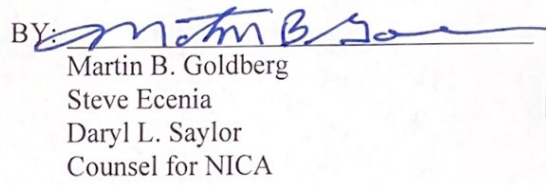 BY: Martin B Go
Martin B. Goldberg
Steve Ecenia
Daryl L. Saylor
Counsel for NICA